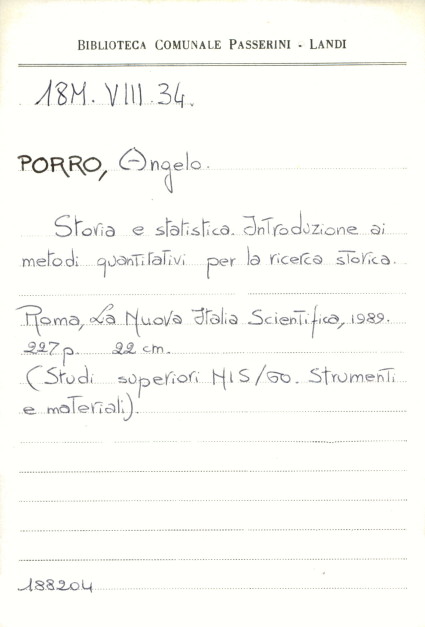 BIBLIOTECA COMUNALE PASSERINI - LANDI
18M. VIII. 34.
PORRO, Angelo.
Storia e statistica. Introduzione ai
metodi quantitativi per la ricerca storica.
Roma, La Nuova Italia Scientifica, 1989.
227 p. 22 cm.
(Studi superiori NIS/60. Strumenti
e materiali).
188204